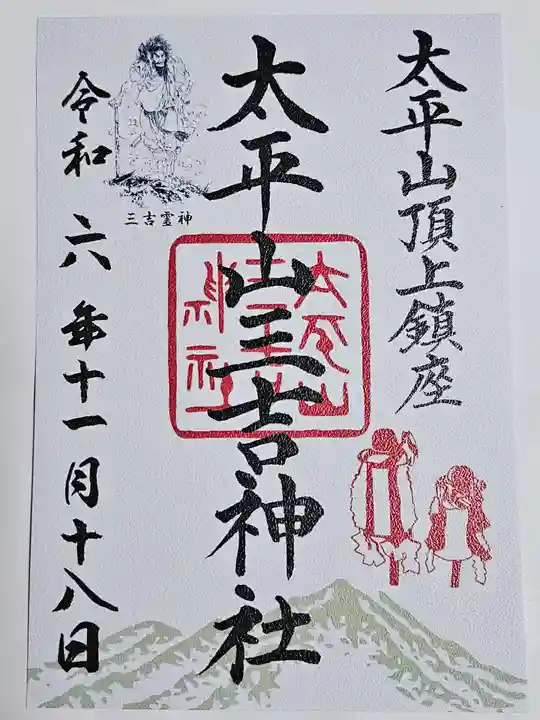 太平山頂上鎮座
太平山三吉神社
太平山
三吉
神社
三吉霊神
令和六年十一月十八日